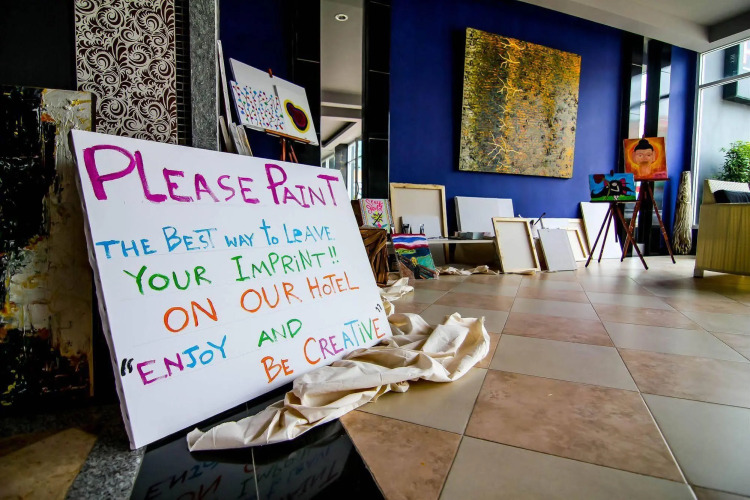 PLEASE PAINT
THE BEST WAY to LEAVE
YOUR IMPRINT!!
ON OUR HOTEL
"ENJOY AND
BE CREATIVE"